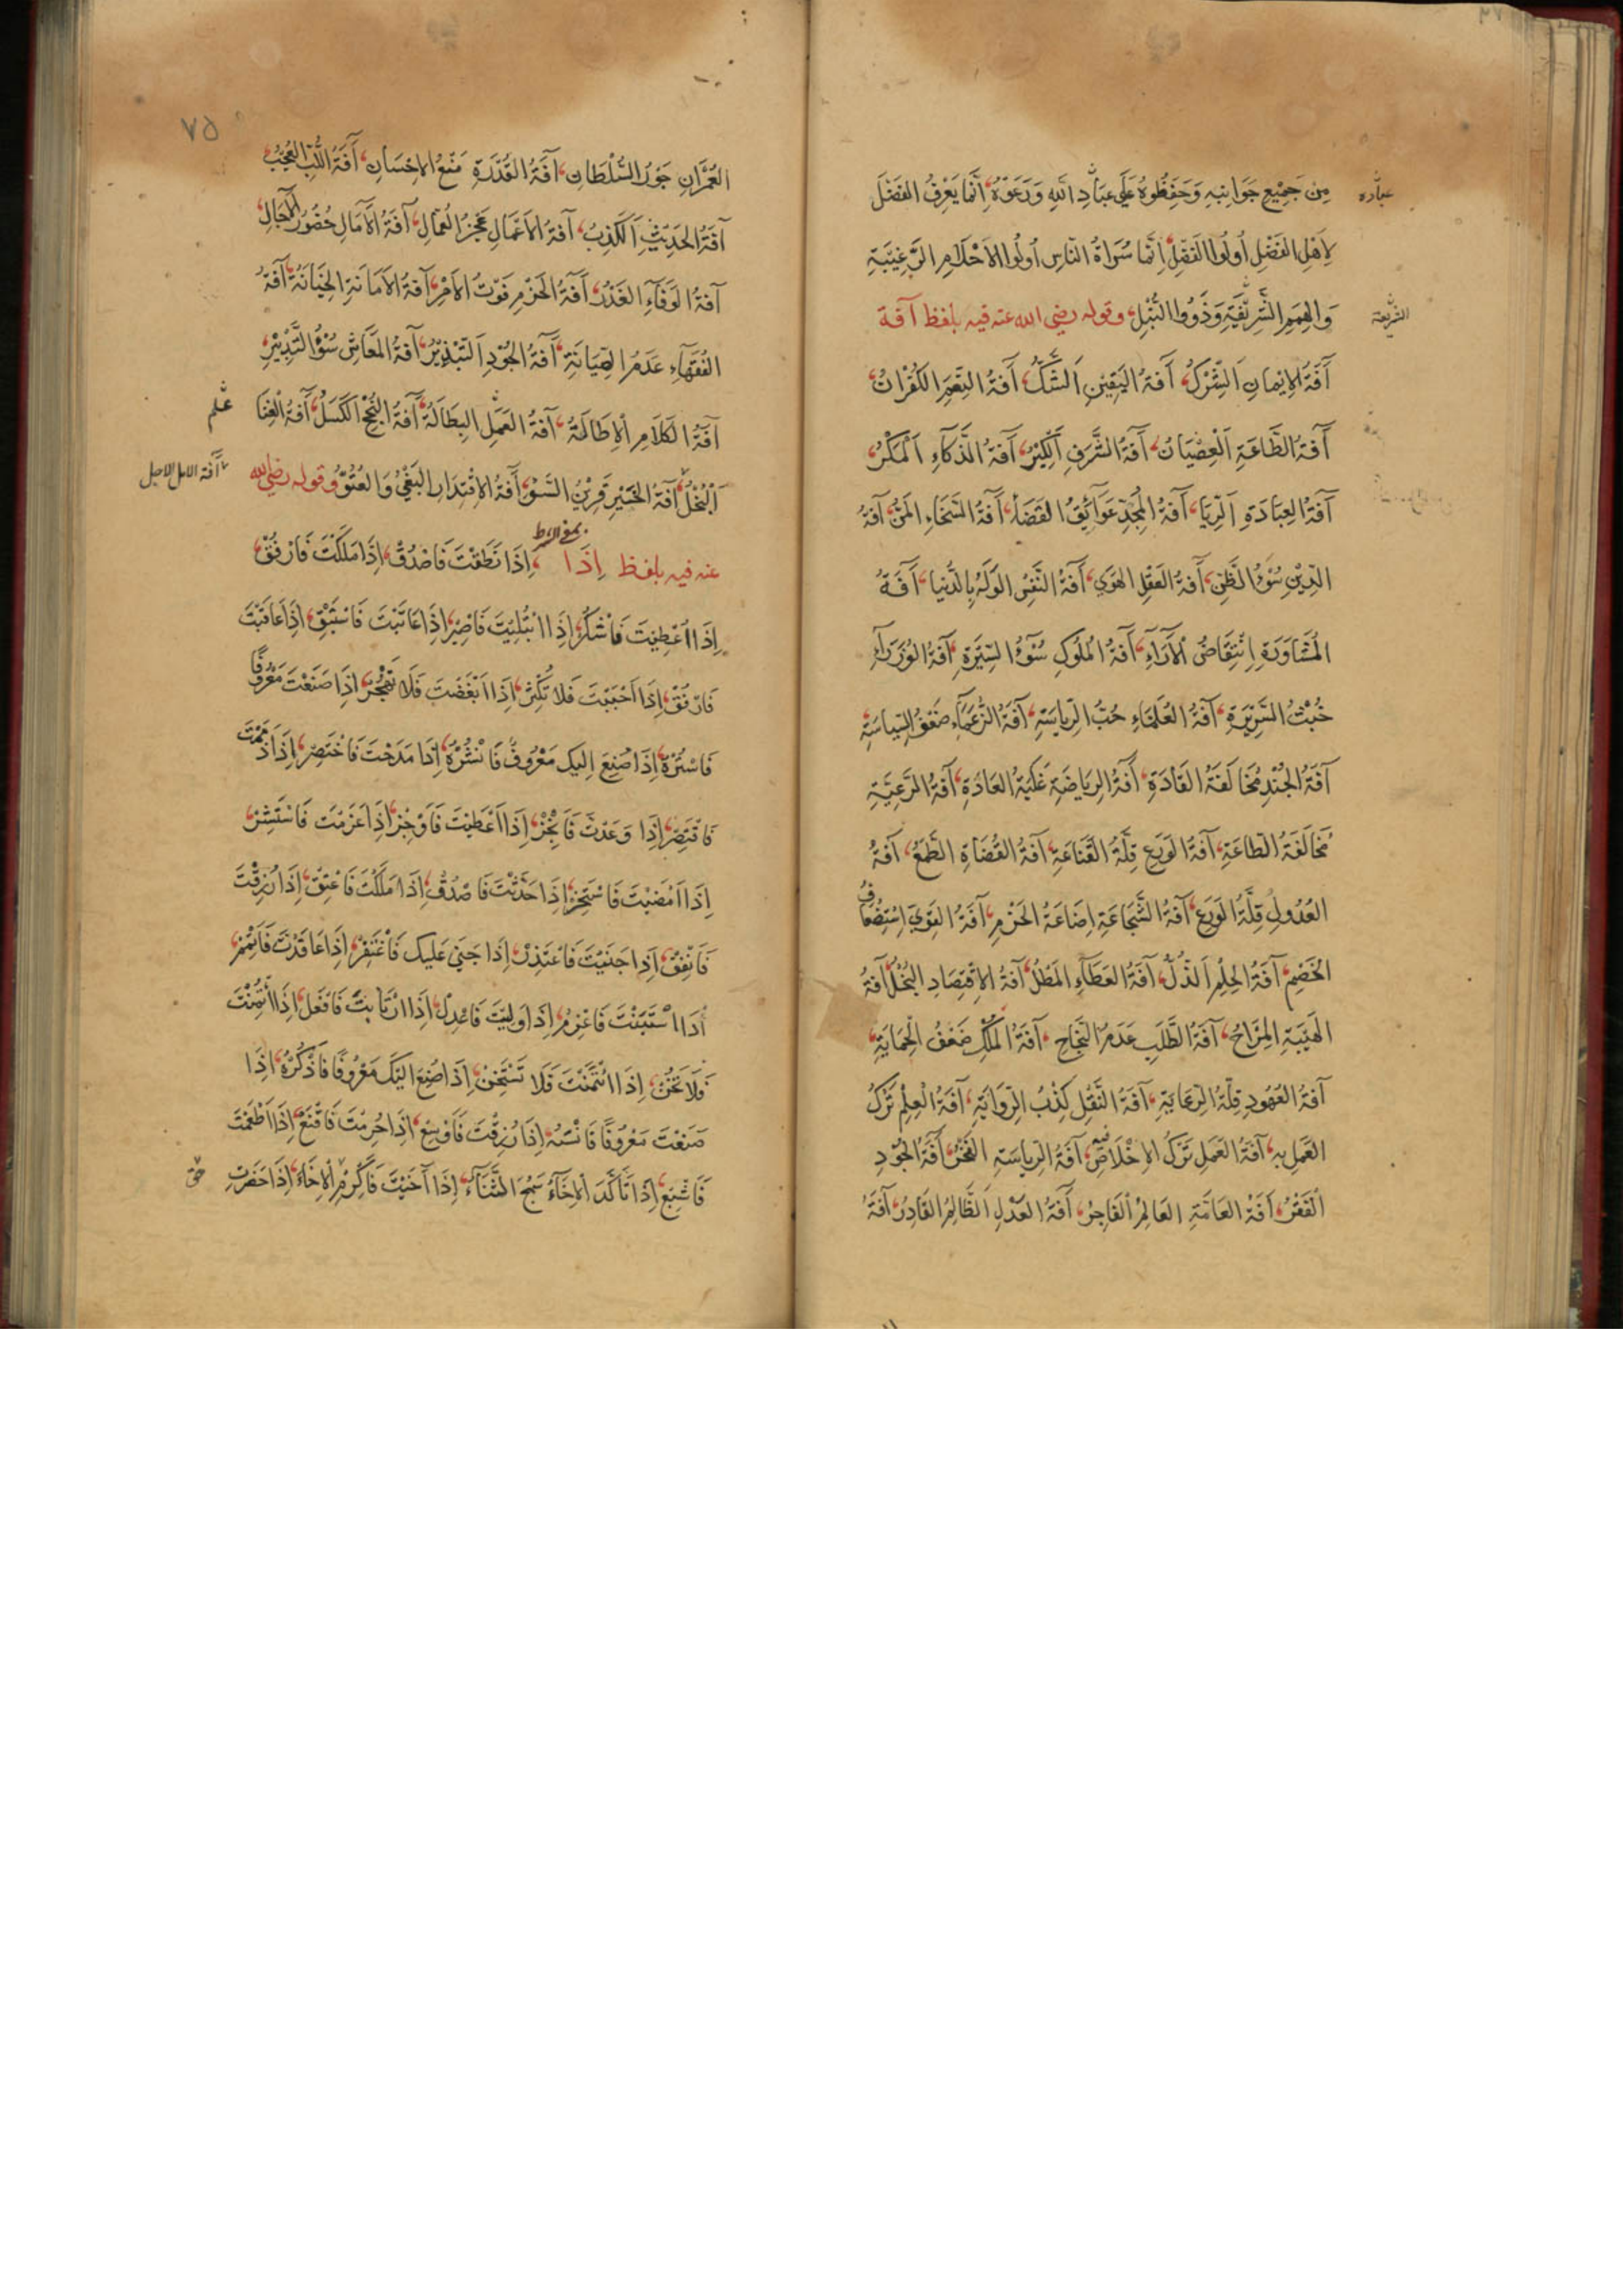 مِنْ جَمِيْعِ جَوَانِبِهِ وَحَفِظُوهُ عَلَى عِبَادِ اللهِ وَرَعَوْهُ، اِنَّمَا يَعْرِفُ الفَضْلَ
عباده
لِاَهْلِ الفَضْلِ اُولُوا الفَضْلِ، اِنَّمَا سُرَاةُ النَّاسِ اُولُوا الاَحْلَامِ الرَّغِيْبَةِ
وَالهِمَمِ الشَّرِيْفَةِ وَذَوُوا النُّبْلِ، وقوله رضي الله عنه فيه بلفظ آفة
الشريفة
آفَةُ الاِيْمَانِ اَلشِّرْكُ، آفَةُ اليَقِيْنِ اَلشَّكُّ، آفَةُ النِّعَمِ الكُفْرَانُ،
آفَةُ الطَّاعَةِ اَلْعِصْيَانُ، آفَةُ الشَّرَفِ اَلْكِبْرُ، آفَةُ الذَّكَاءِ اَلْمَكْرُ،
آفَةُ العِبَادَةِ اَلرِّيَا، آفَةُ المَجْدِ عَوَآئِقُ القَضَاءِ، آفَةُ السَّخَاءِ المَنُّ، آفَةُ
الدِّيْنِ سُوْءُ الظَّنِّ، آفَةُ العَقْلِ الهَوَى، آفَةُ النَّفْسِ الوَلَهُ بِالدُّنْيَا، آفَةُ
المُشَاوَرَةِ اِنْتِقَاضُ الْآرَآءِ، آفَةُ المُلُوكِ سُوْءُ السِّيْرَةِ، آفَةُ الوُزَرَآءِ
خُبْثُ السَّرِيْرَةِ، آفَةُ العُلَمَاءِ حُبُّ الرِّيَاسَةِ، آفَةُ الزُّعَمَآءِ ضَعْفُ السِّيَاسَةِ
آفَةُ الجُنْدِ مُخَالَفَةُ القَادَةِ، آفَةُ الرِّيَاضَةِ غَلَبَةُ العَادَةِ، آفَةُ الرَّعِيَّةِ
مُخَالَفَةُ الطَّاعَةِ، آفَةُ الوَرَعِ قِلَّةُ القَنَاعَةِ، آفَةُ القُضَاةِ الطَّمَعُ، آفَةُ
العُدُولِ قِلَّةُ الوَرَعِ، آفَةُ الشَّجَاعَةِ اِضَاعَةُ الحَزْمِ، آفَةُ القَوِيِّ اِسْتِضْعَافُ
الخَصْمِ، آفَةُ الحِلْمِ اَلذُّلُّ، آفَةُ العَطَآءِ المَطْلُ، آفَةُ الاِقْتِصَادِ البُخْلُ، آفَةُ
الهَيْبَةِ المِزَاحُ، آفَةُ الطَّلَبِ عَدَمُ النَّجَاحِ، آفَةُ المُلْكِ ضَعْفُ الحِمَايَةِ،
آفَةُ العُهُودِ قِلَّةُ الرِّعَايَةِ، آفَةُ النَّقْلِ كِذْبُ الرِّوَايَةِ، آفَةُ العِلْمِ تَرْكُ
العَمَلِ بِهِ، آفَةُ العَمَلِ تَرْكُ الاِخْلَاصِ فيه، آفَةُ الرِّيَاسَةِ الفَخْرُ، آفَةُ الجُوْدِ
اَلْفَقْرُ، آفَةُ العَامَّةِ العَالِمُ الْفَاجِرُ، آفَةُ العَدْلِ اَلظَّالِمُ القَادِرُ، آفَةُ
٧٥
العُمْرَانِ جَوْرُ السُّلْطَانِ، آفَةُ القُدْرَةِ مَنْعُ الاِحْسَانِ، آفَةُ اللُّبِّ العُجْبُ،
آفَةُ الحَدِيْثِ اَلْكَذِبُ، آفَةُ الاَعْمَالِ عَجْزُ العُمَّالِ، آفَةُ الآمَالِ حُضُورُ الآجَالِ،
آفَةُ الوَفَآءِ الغَدْرُ، آفَةُ الحَزْمِ فَوْتُ الاَمْرِ، آفَةُ الاَمَانَةِ الخِيَانَةُ، آفَةُ
الفُقَهَآءِ عَدَمُ الصِّيَانَةِ، آفَةُ الجُوْدِ اَلتَّبْذِيْرُ، آفَةُ المَعَاشِ سُوْءُ التَّدْبِيْرِ،
آفَةُ الكَلَامِ اْلاِطَالَةُ، آفَةُ العَمَلِ البِطَالَةُ، آفَةُ النُّجْحِ الكَسَلُ، آفَةُ الْغِنَا
اَلْبُخْلُ، آفَةُ الخَيْرِ قَرِيْنُ السَّوْءِ، آفَةُ الاِقْتِدَارِ البَغْيُ وَالعُتُوُّ، وقوله رضي الله
آفة الامل الاجل
عنه فيه بلفظ اِذَا، اِذَا نَطَقْتَ فَاصْدُقْ، اِذَا مَلَكْتَ فَارْفُقْ،
بمعنى الشرط
اِذَا اُعْطِيْتَ فَاشْكُرْ، اِذَا ابْتُلِيْتَ فَاصْبِرْ، اِذَا عَاتَبْتَ فَاسْتَبْقِ، اِذَا عَاقَبْتَ
فَارْفُقْ، اِذَا اَحْبَبْتَ فَلَا تُكْثِرْ، اِذَا اَبْغَضْتَ فَلَا تَهْجُرْ، اِذَا صَنَعْتَ مَعْرُوفًا
فَاسْتُرْهُ، اِذَا صُنِعَ اِلَيْكَ مَعْرُوفٌ فَانْشُرْهُ، اِذَا مَدَحْتَ فَاخْتَصِرْ، اِذَا ذَمَمْتَ
فَاقْتَصِرْ، اِذَا وَعَدْتَ فَاَنْجِزْ، اِذَا اَعْطَيْتَ فَاَوْجِزْ، اِذَا عَزَمْتَ فَاسْتَشِرْ،
اِذَا اَمْضَيْتَ فَاسْتَخِرْ، اِذَا حَدَّثْتَ فَاصْدُقْ، اِذَا مَلَكْتَ فَاعْتِقْ، اِذَا رُزِقْتَ
فَاَنْفِقْ، اِذَا جَنَيْتَ فَاعْتَذِرْ، اِذَا جُنِيَ عَلَيْكَ فَاغْتَفِرْ، اِذَا عَاقَدْتَ فَاَتْمِمْ،
اِذَا اسْتَبَنْتَ فَاعْزِمْ، اِذَا وَلِيْتَ فَاعْدِلْ، اِذَا ائْتُمِنْتَ
فَلَا تَخُنْ، اِذَا ائْتَمَنْتَ فَلَا تَسْتَخِنْ، اِذَا صُنِعَ اِلَيْكَ مَعْرُوفًا فَاذْكُرْهُ، اِذَا
صَنَعْتَ مَعْرُوفًا فَانْسَهُ، اِذَا رُزِقْتَ فَاَوْسِعْ، اِذَا حُرِمْتَ فَاقْنَعْ، اِذَا اَطْعَمْتَ
فَاَشْبِعْ، اِذَا تَأَكَّدَ الْاِخَآءُ سَمُجَ الثَّنَآءُ، اِذَا آخَيْتَ فَاَكْرِمْ الْاِخَاءَ، اِذَا حَضَرَتِ
حق